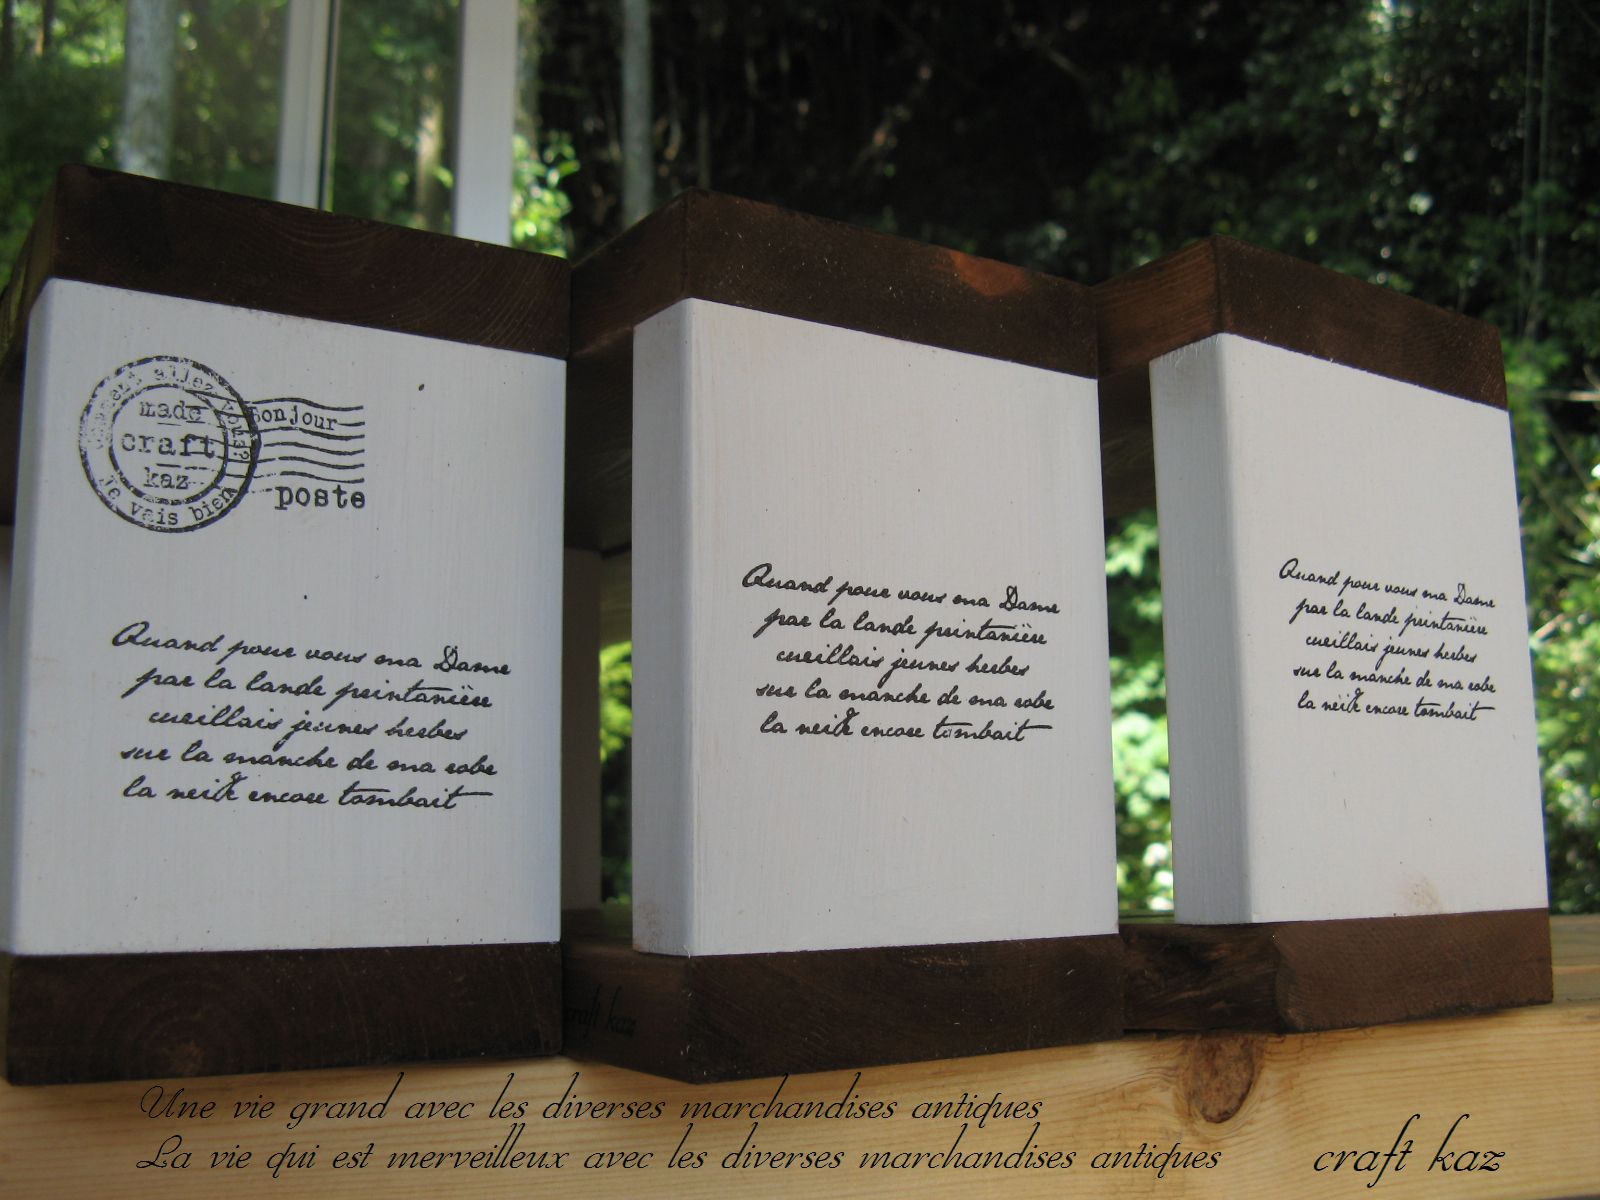 comment allez vous?
made
craft
kaz
Je vais bien
Bonjour
poste
Quand pour vous ma Dame
par la lande printanière
cueillais jeunes herbes
sur la manche de ma robe
la neige encore tombait
Quand pour vous ma Dame
par la lande printanière
cueillais jeunes herbes
sur la manche de ma robe
la neige encore tombait
Quand pour vous ma Dame
par la lande printanière
cueillais jeunes herbes
sur la manche de ma robe
la neige encore tombait
craft kaz
Une vie grand avec les diverses marchandises antiques
La vie qui est merveilleux avec les diverses marchandises antiques
craft kaz